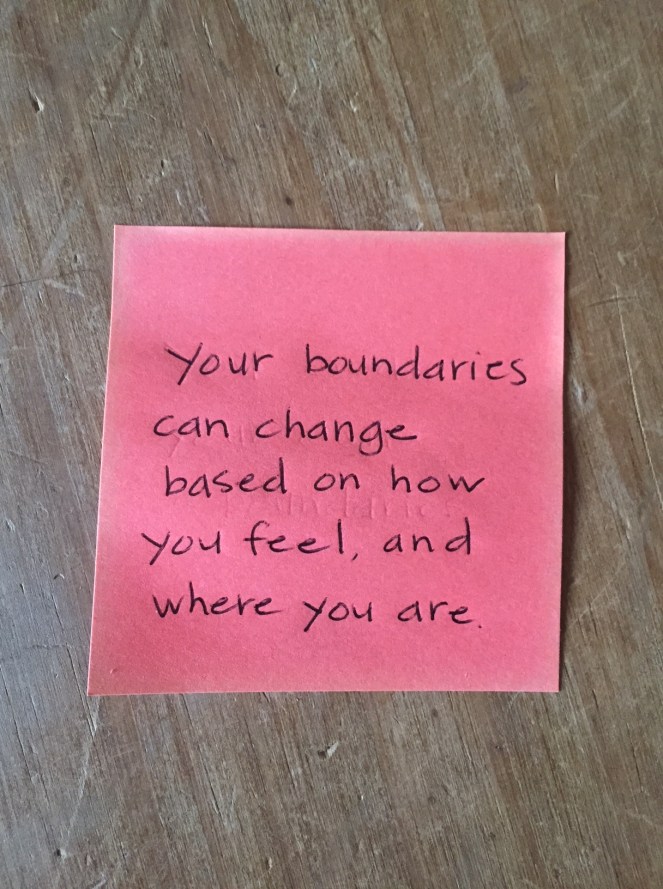 Your boundaries
can change
based on how
you feel, and
where you are.